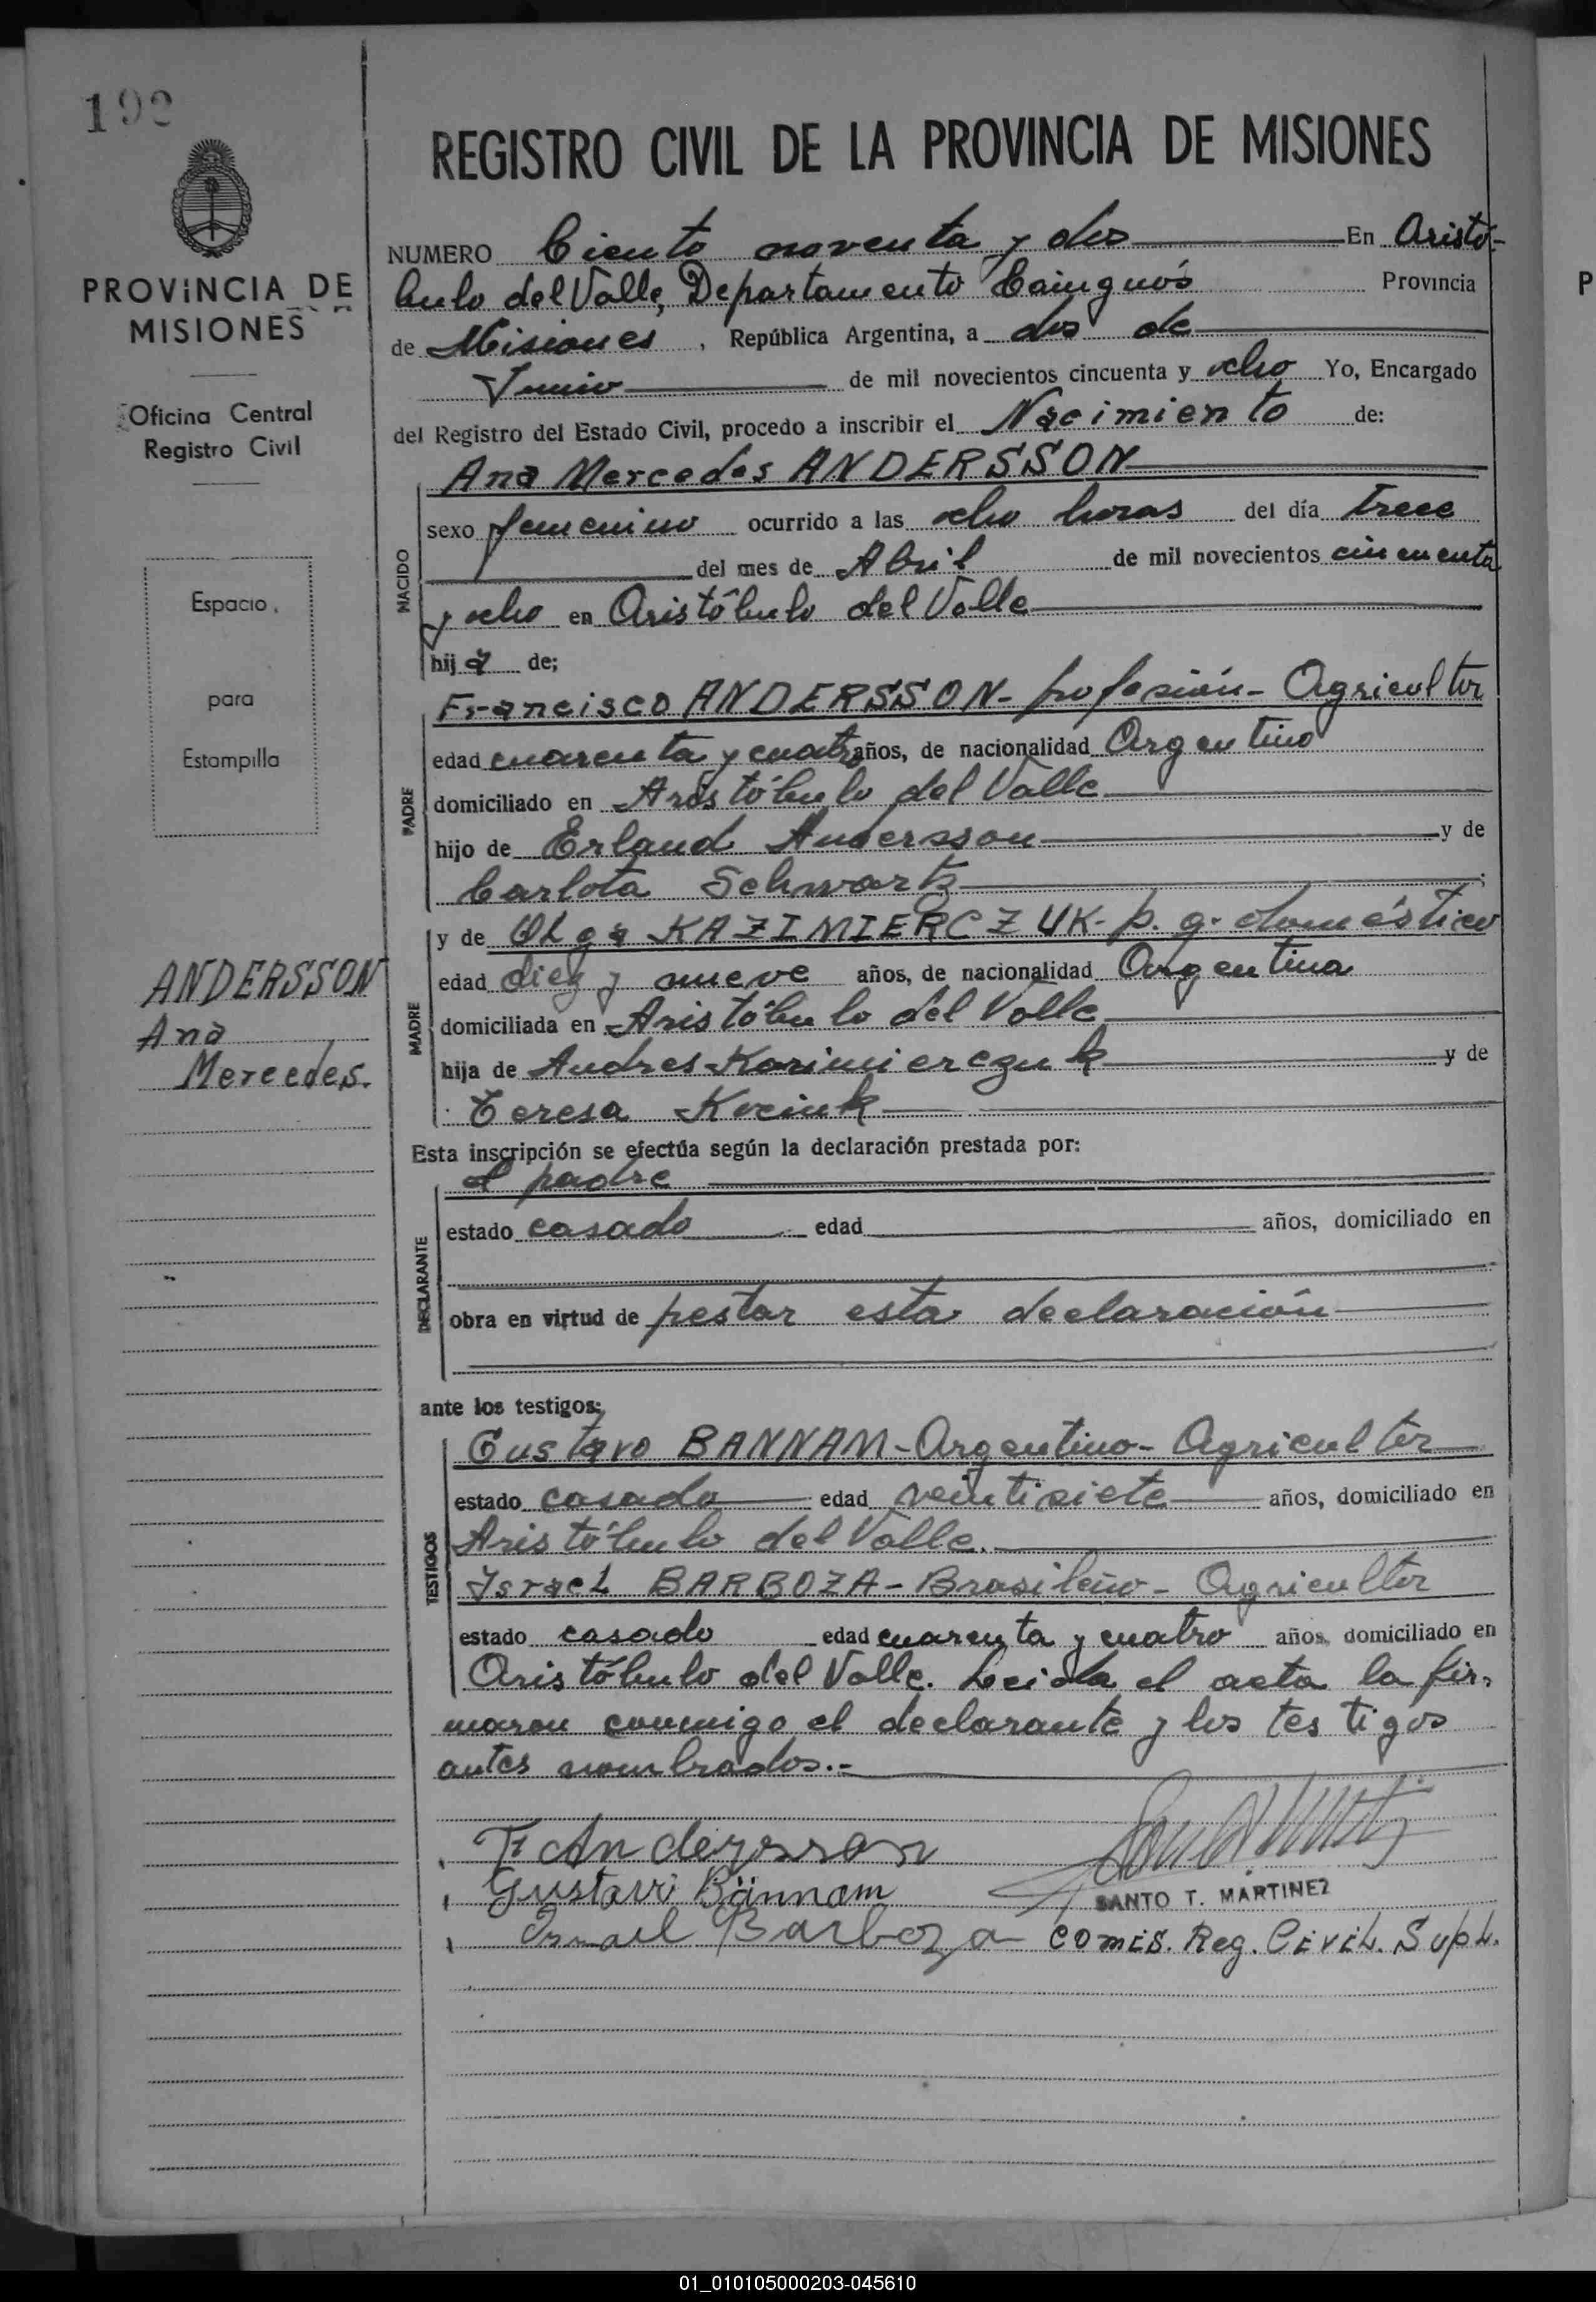 192
PROVINCIA DE
MISIONES
Oficina Central
Registro Civil
Espacio
para
Estampilla
ANDERSSON
Ana
Mercedes.
REGISTRO CIVIL DE LA PROVINCIA DE MISIONES
NUMERO Ciento noventa y dos En Aristó-
bulo del Valle, Departamento Cainguás Provincia
de Misiones, República Argentina, a dos de
Junio de mil novecientos cincuenta y ocho Yo, Encargado
del Registro del Estado Civil, procedo a inscribir el Nacimiento de:
Ana Mercedes ANDERSSON
NACIDO
sexo femenino ocurrido a las ocho horas del día trece
del mes de Abril de mil novecientos cincuenta
y ocho en Aristóbulo del Valle
hija de;
Francisco ANDERSSON- profesión- Agricultor
PADRE
edad cuarenta y cuatro años, de nacionalidad Argentino
domiciliado en Aristóbulo del Valle
hijo de Erland Andersson y de
Carlota Schwartz
y de OLga KAZIMIERCZUK- p. q. doméstico
MADRE
edad diez y nueve años, de nacionalidad Argentina
domiciliada en Aristóbulo del Valle
hija de Andres Kazimierczuk y de
Teresa Kociuk
Esta inscripción se efectúa según la declaración prestada por:
el padre
DECLARANTE
estado casado edad años, domiciliado en
obra en virtud de pestar esta declaración
ante los testigos;
TESTIGOS
Gustavo BANNAM-Argentino- Agricultor
estado casado edad veintisiete años, domiciliado en
Aristóbulo del Valle.
IsraeL BARBOZA- Brasileño- Agricultor
estado casado edad cuarenta y cuatro años, domiciliado en
Aristóbulo del Valle. Leida el acta la fir-
maron conmigo el declarante y los testigos
antes nombrados.-
F Andersson
Gustavo Bännam
SANTO T. MARTINEZ
Israel Barboza comis. Reg. CiviL. SupL.
01_010105000203-045610